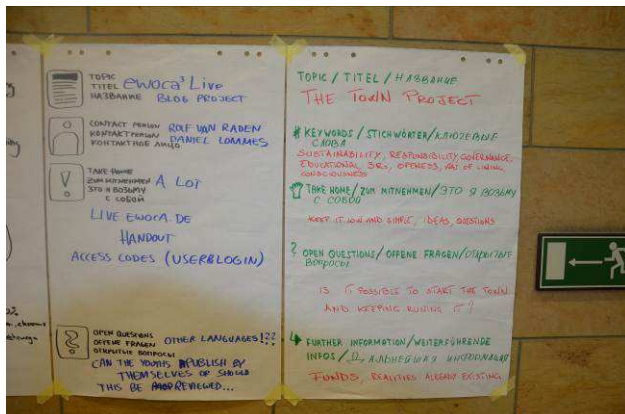 TOPIC
TITEL ewoca³ Live
НАЗВАНИЕ BLOG PROJECT
CONTACT PERSON ROLF VAN RADEN
KONTAKTPERSON DANIEL LOMMES
КОНТАКТНОЕ ЛИЦО
TAKE HOME
ZUM MITNEHMEN A LOT
ЭТО Я ВОЗЬМУ
С СОБОЙ
LIVE EWOCA.DE
HANDOUT
ACCESS CODES (USERBLOGIN)
OPEN QUESTIONS
OFFENE FRAGEN OTHER LANGUAGES!??
ОТКРЫТЫЕ ВОПРОСЫ
CAN THE YOUTHS PUBLISH BY
THEMSELVES OR SHOULD
THIS BE PREVIEWED...
TOPIC / TITEL / НАЗВАНИЕ
THE TOWN PROJECT
# KEYWORDS / STICHWÖRTER / КЛЮЧЕВЫЕ
СЛОВА
SUSTAINABILITY, RESPONSIBILITY, GOVERNANCE,
EDUCATIONAL, OPENESS, OF LIVING
CONSCIOUSNESS
TAKE HOME / ZUM MITNEHMEN / ЭТО Я ВОЗЬМУ
С СОБОЙ
KEEP IT LOW AND SIMPLE, IDEAS, QUESTIONS
? OPEN QUESTIONS / OFFENE FRAGEN / ОТКРЫТЫЕ
ВОПРОСЫ
IS IT POSSIBLE TO START THE TOWN
AND KEEPING RUNING IT?
FURTHER INFORMATION / WEITERFÜHRENDE
INFOS /
FUNDS, REALITIES ALREADY EXISTING